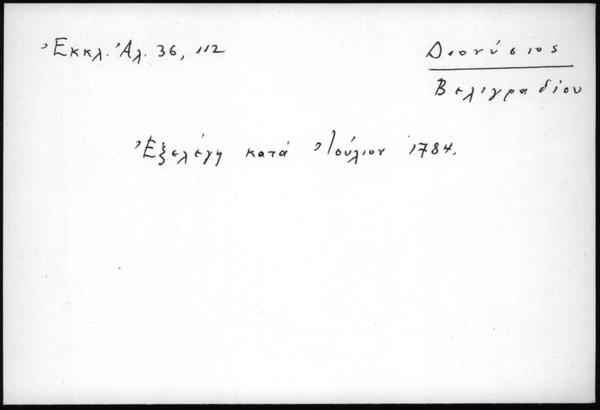 Ἐκκλ. Ἀλ. 36, 112
Διονύσιος
Βελιγραδίου
Ἐξελέγη κατά Ἰούλιον 1784.